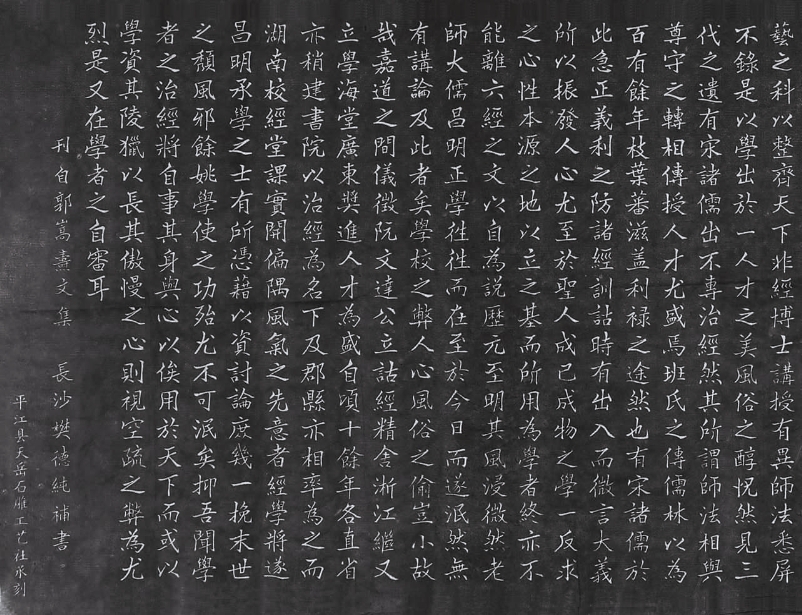 藝之科以整齊天下非經博士講授有異師法悉屏
不錄是以學出於一人才之美風俗之醇怳然見三
代之遺有宋諸儒出不專治經然其所謂師法相與
尊守之轉相傳授人才尤盛焉班氏之傳儒林以為
百有餘年枝葉蕃滋盖利禄之途然也有宋諸儒於
此急正義利之防諸經訓詁時有出入而微言大義
所以振發人心尤至於聖人成己成物之學一反求
之心性本源之地以立之基而所用為學者終亦不
能離六經之文以自為説歴元至明其風浸微然老
師大儒昌明正學徃徃而在至於今日而遂泯然無
有講論及此者矣學校之弊人心風俗之偷豈小故
哉嘉道之間儀徵阮文達公立詁經精舍浙江繼又
立學海堂廣東奬進人才為盛自頃十餘年各直省
亦稍建書院以治經為名下及郡縣亦相率為之而
湖南校經堂課實開偏隅風氣之先意者經學將遂
昌明承學之士有所憑藉以資討論庶幾一挽末世
之頽風邪餘姚學使之功殆尤不可泯矣抑吾聞學
者之治經將自事其身與心以俟用於天下而或以
學資其陵獵以長其傲慢之心則視空疏之弊為尤
烈是又在學者之自審耳
刊自郭嵩燾文集 長沙樊德純補書
平江县天岳石雕工艺社承刻